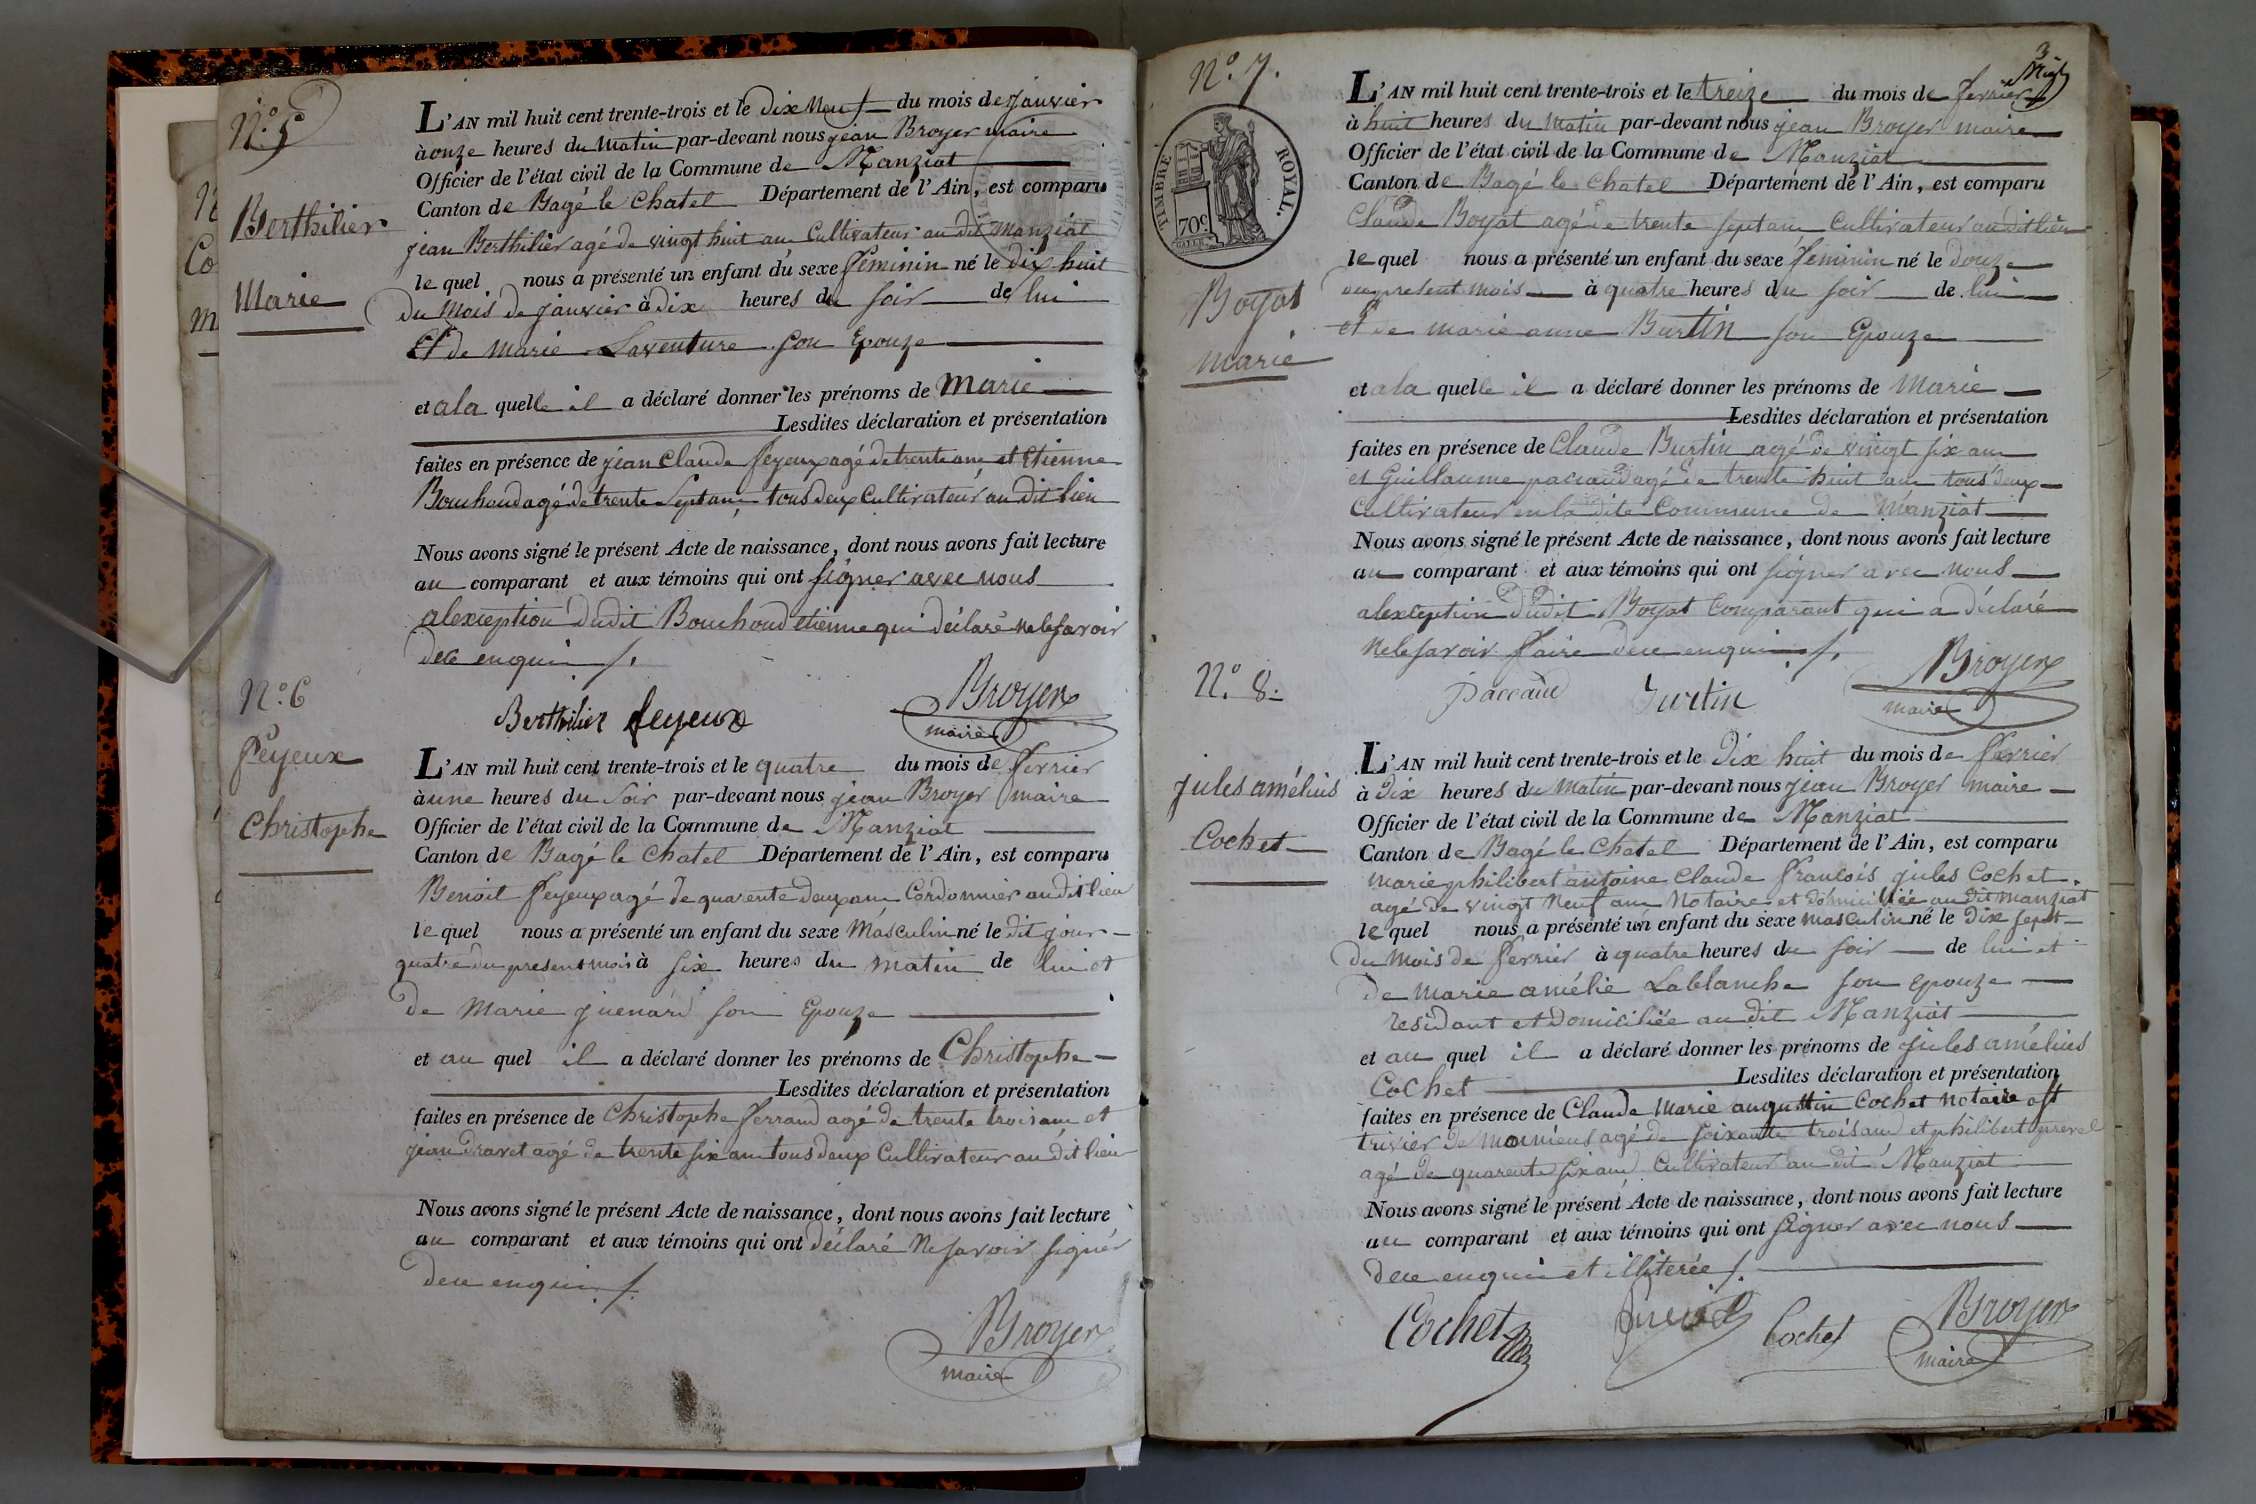 N.° 5
Berthilier
Marie
L'AN mil huit cent trente-trois et le dix neuf du mois de janvier
à onze heures du matin par-devant nous jean Broyer maire
Officier de l'état civil de la Commune de Manziat
Canton de Bagé le Chatel Département de l'Ain, est comparu
jean Berthilier agé de vingt huit ans Cultivateur au dit Manziat
le quel nous a présenté un enfant du sexe féminin né le dix huit
du mois de janvier à dix heures du soir de lui
Et de marie Laventure son Epouze
et a la quelle il a déclaré donner les prénoms de Marie
Lesdites déclaration et présentation
faites en présence de jean Claude feyeux agé de trente ans et Etienne
Bouchoud agé de trente Sept ans, tous deux Cultivateur au dit lieu
Nous avons signé le présent Acte de naissance, dont nous avons fait lecture
au comparant et aux témoins qui ont signer avec nous
alexception dudit Bouchoud etienne qui déclaré ne le savoir
de ce enquis
Berthilier feyeux Broyer
maire
N.° 6
feyeux
Christophe
L'AN mil huit cent trente-trois et le quatre du mois de fevrier
à une heures du soir par-devant nous jean Broyer maire
Officier de l'état civil de la Commune de Manziat
Canton de Bagé le Chatel Département de l'Ain, est comparu
Benoit feyeux agé de quarente deux ans Cordonnier au dit lieu
le quel nous a présenté un enfant du sexe Masculin né le dit jour
quatre du present mois à six heures du matin de lui et
de Marie guenard son Epouze
et au quel il a déclaré donner les prénoms de Christophe
Lesdites déclaration et présentation
faites en présence de Christophe ferrand agé de trente trois ans et
jean dravet agé de trente six ans tous deux Cultivateur au dit lieu
Nous avons signé le présent Acte de naissance, dont nous avons fait lecture
au comparant et aux témoins qui ont déclaré ne savoir signer
de ce enquis
Broyer
maire
3
N.° 7.
TIMBRE ROYAL.
70 c.
Boyat
marie
L'AN mil huit cent trente-trois et le treize du mois de fevrier
à huit heures du matin par-devant nous jean Broyer maire
Officier de l'état civil de la Commune de Manziat
Canton de Bagé le Chatel Département de l'Ain, est comparu
Claude Boyat agé de trente sept ans Cultivateur au dit lieu
le quel nous a présenté un enfant du sexe feminin né le douze
du present mois à quatre heures du soir de lui
et de marie anne Burtin son Epouze
et a la quelle il a déclaré donner les prénoms de Marie
Lesdites déclaration et présentation
faites en présence de Claude Burtin agé de vingt six ans
et Guillaume paccaud agé de trente huit ans tous deux
Cultivateur en la dite Commune de Manziat
Nous avons signé le présent Acte de naissance, dont nous avons fait lecture
au comparant et aux témoins qui ont signer avec nous
alexception dudit Boyat Comparant qui a déclaré
ne le savoir faire de ce enquis
paccaud Burtin Broyer
maire
N.° 8.
jules amélius
Cochet
L'AN mil huit cent trente-trois et le dix huit du mois de fevrier
à dix heures du matin par-devant nous jean Broyer maire
Officier de l'état civil de la Commune de Manziat
Canton de Bagé le Chatel Département de l'Ain, est comparu
marie philibert antoine Claude francois jules Cochet
agé de vingt neuf ans Notaire et domiciliée au dit manziat
le quel nous a présenté un enfant du sexe masculin né le dix sept
du mois de fevrier à quatre heures du soir de lui et
de marie amélie Lablanche son epouze
residant et domiciliée au dit Manziat
et au quel il a déclaré donner les prénoms de jules amélius
Cochet Lesdites déclaration et présentation
faites en présence de Claude Marie augustin Cochet Notaire a st
trivier de moinieus agé de soixante trois ans et philibert prevel
agé de quarente six ans Cultivateur au dit Manziat
Nous avons signé le présent Acte de naissance, dont nous avons fait lecture
au comparant et aux témoins qui ont signer avec nous
de ce enquis et illiterée
Cochet Cochet Broyer
maire